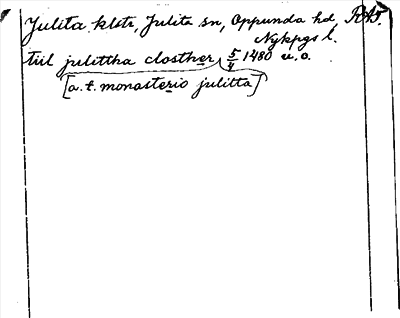 Julita klstr, Julita sn, Oppunda hd, RAP.
Nykpgs l.
tiil julittha closther 5/4 1480 u.o.
[a.t. monasterio julitta]